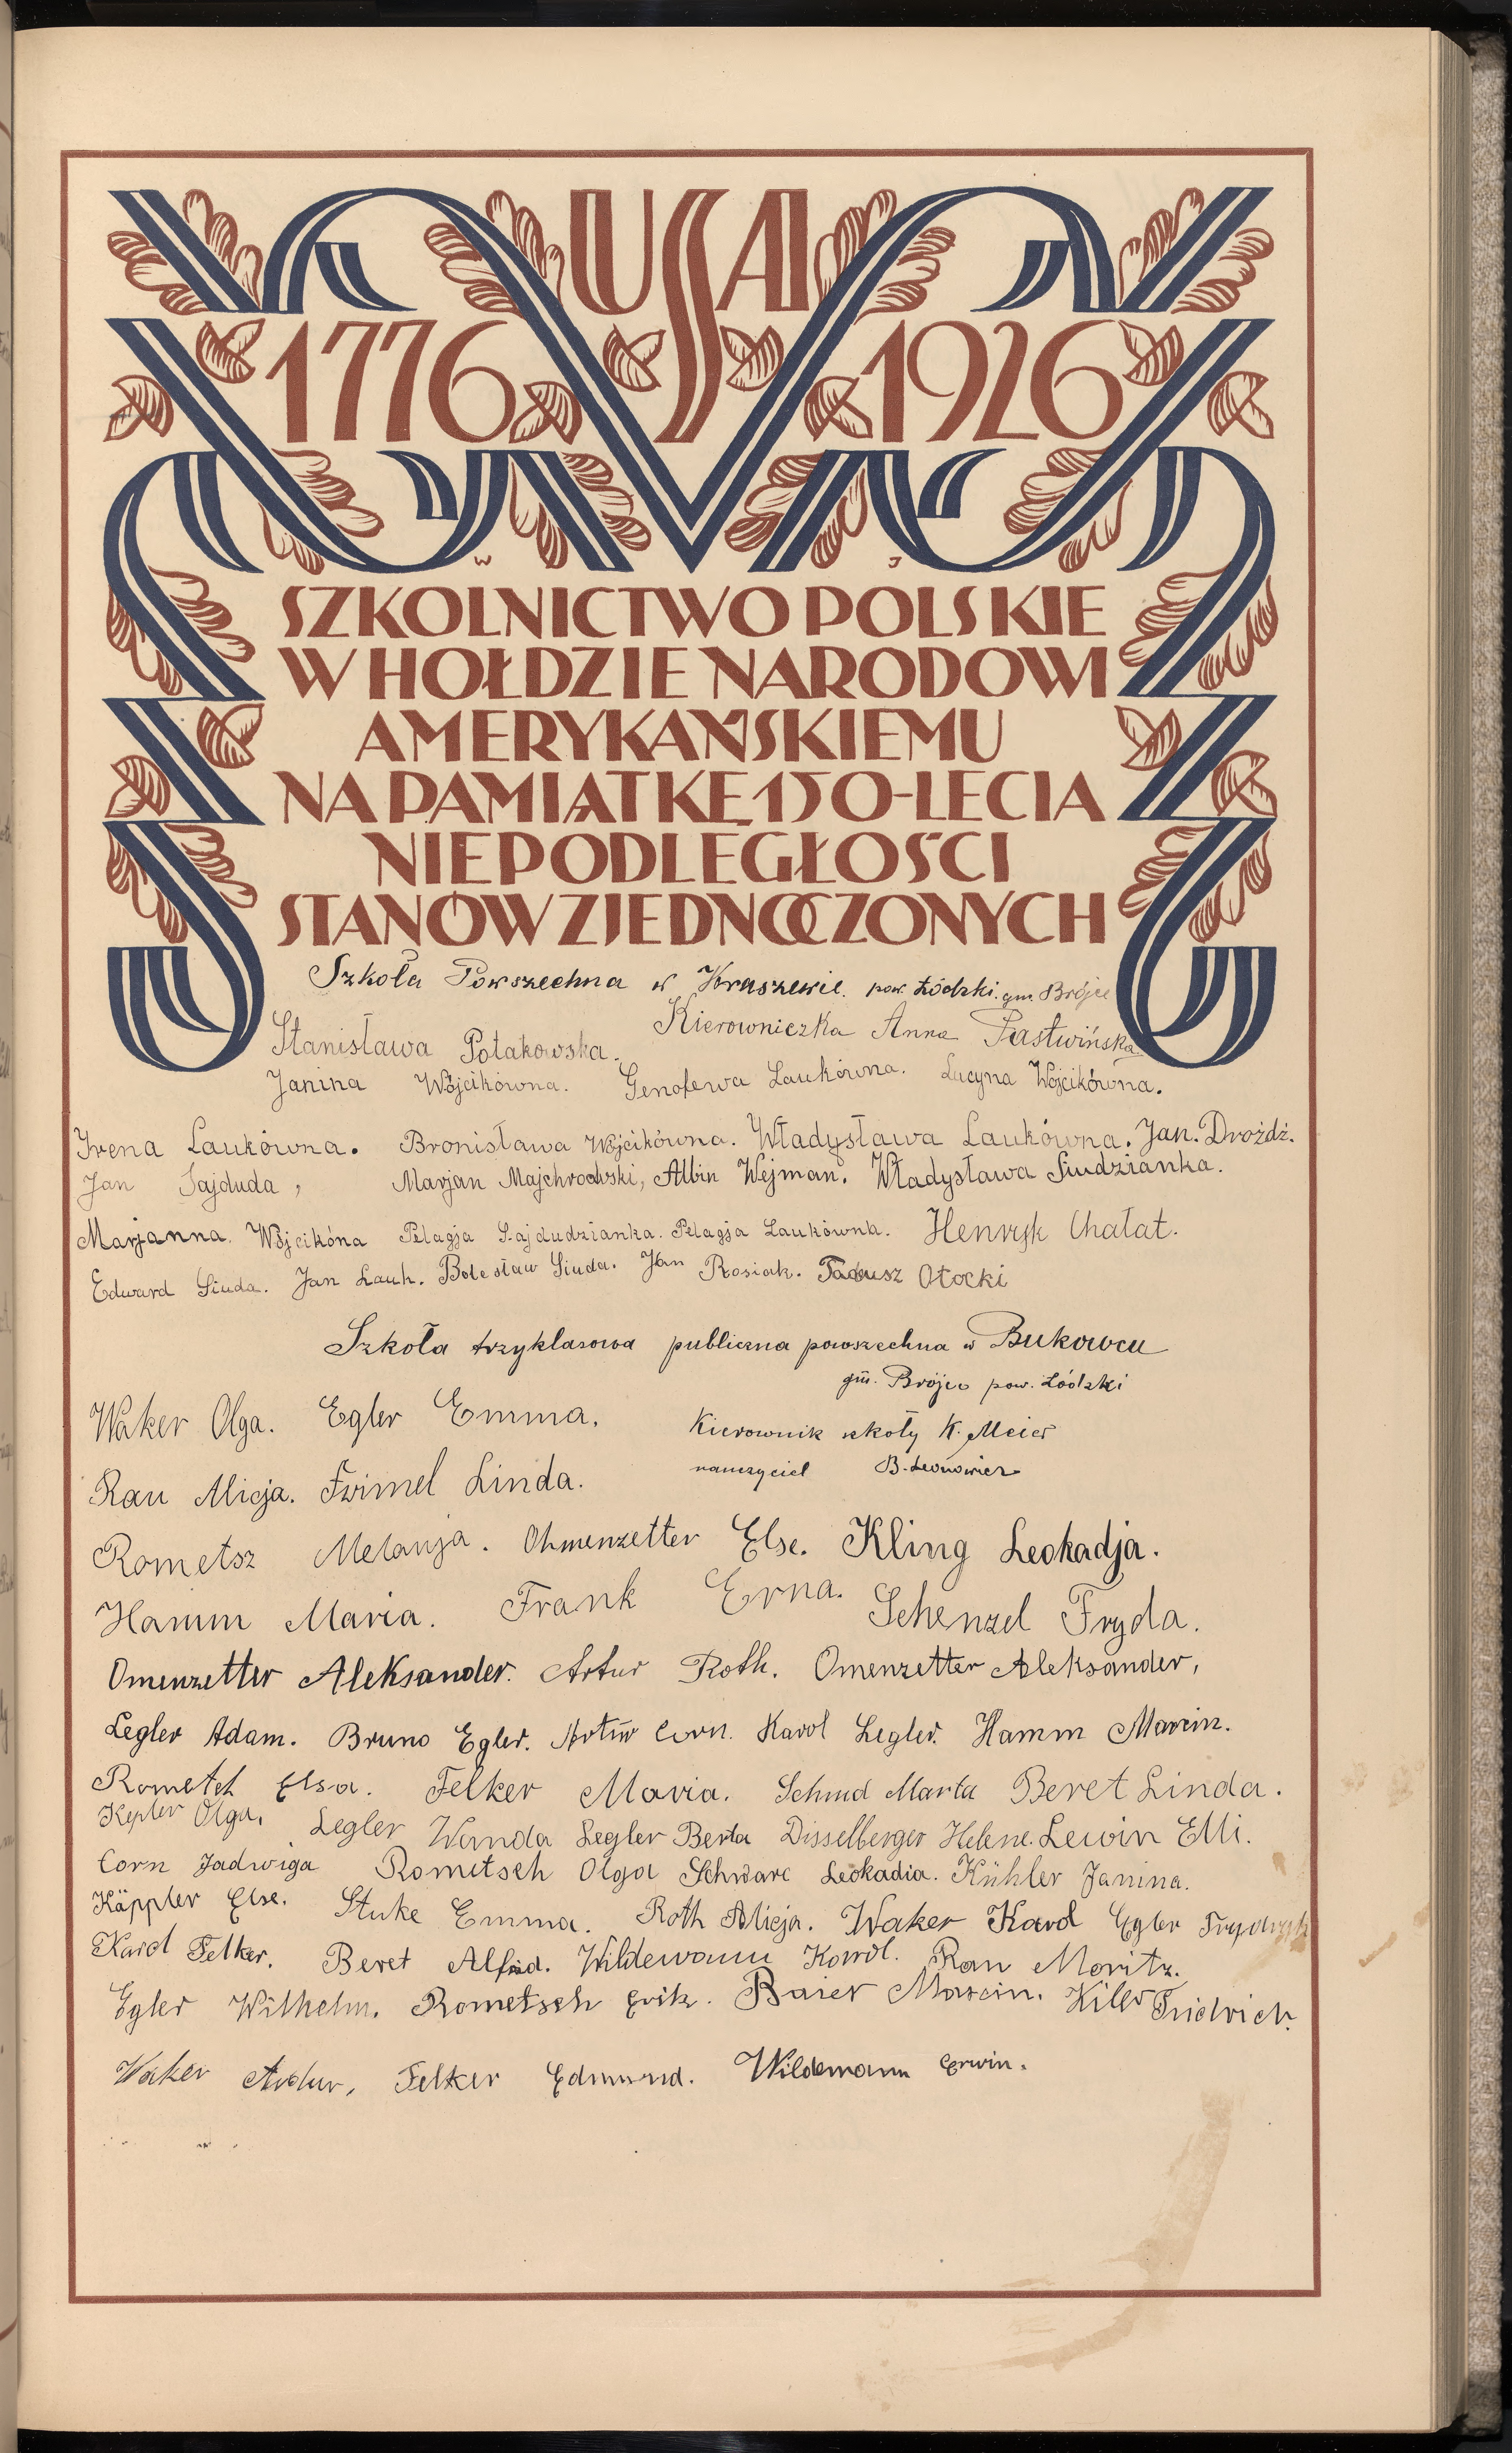 USA
1776 1926
W J
SZKOLNICTWO POLSKIE
W HOŁDZIE NARODOWI
AMERYKAŃSKIEMU
NA PAMIĄTKĘ 150-LECIA
NIEPODLEGŁOŚCI
STANÓW ZJEDNOCZONYCH
Szkoła Powszechna w Kraszewie. pow. Łódzki. gm. Brójce
Kierowniczka Anna Pastwińska
Stanisława Potakowska.
Janina Wójcikówna. Genofewa Laukówna. Lucyna Wójcikówna.
Irena Laukówna. Bronisława Wójcikówna. Władysława Laukówna. Jan. Drożdż.
Jan Sajduda, Marjan Majchrowski, Albin Wejman. Władysława Siudzianka.
Marjanna. Wójcikóna Pelagja Sajdudzianka. Pelagja Laukówna. Henryk Chałat.
Edward Siuda. Jan Lauk. Bolesław Siuda. Jan Rosiak. Tadeusz Otocki
Szkoła trzyklasowa publiczna powszechna w Bukowcu
gm. Brójce pow. Łódzki
Waker Olga. Egler Emma. Kierownik szkoły K. Meier
nauczyciel B. Leonowicz
Rau Alicja. Frimel Linda.
Rometsz Melanja. Ohmenzetter Else. Kling Leokadja.
Hamm Maria. Frank Erna. Schenzel Fryda.
Omenzetter Aleksander. Artur Roth. Omenzetter Aleksander,
Legler Adam. Bruno Egler. Artur Corn. Karol Legler. Hamm Marcin.
Rometch Elsa. Felker Maria. Schmd Marta Beret Linda.
Kepler Olga. Legler Wanda Legler Berta Disselberger Helene. Lewin Elli.
Corn Jadwiga Rometsch Olga Schwarc Leokadia. Kühler Janina.
Käppler Else. Stuke Emma. Roth Alicja. Waker Karol Egler Frydryk
Karol Felker. Beret Alfred. Wildemann Karol. Rau Moritz.
Egler Wilhelm. Rometsch Erik. Baier Marcin. Kiler Fridrich.
Waker Artur, Felker Edmund. Wildemann Erwin.